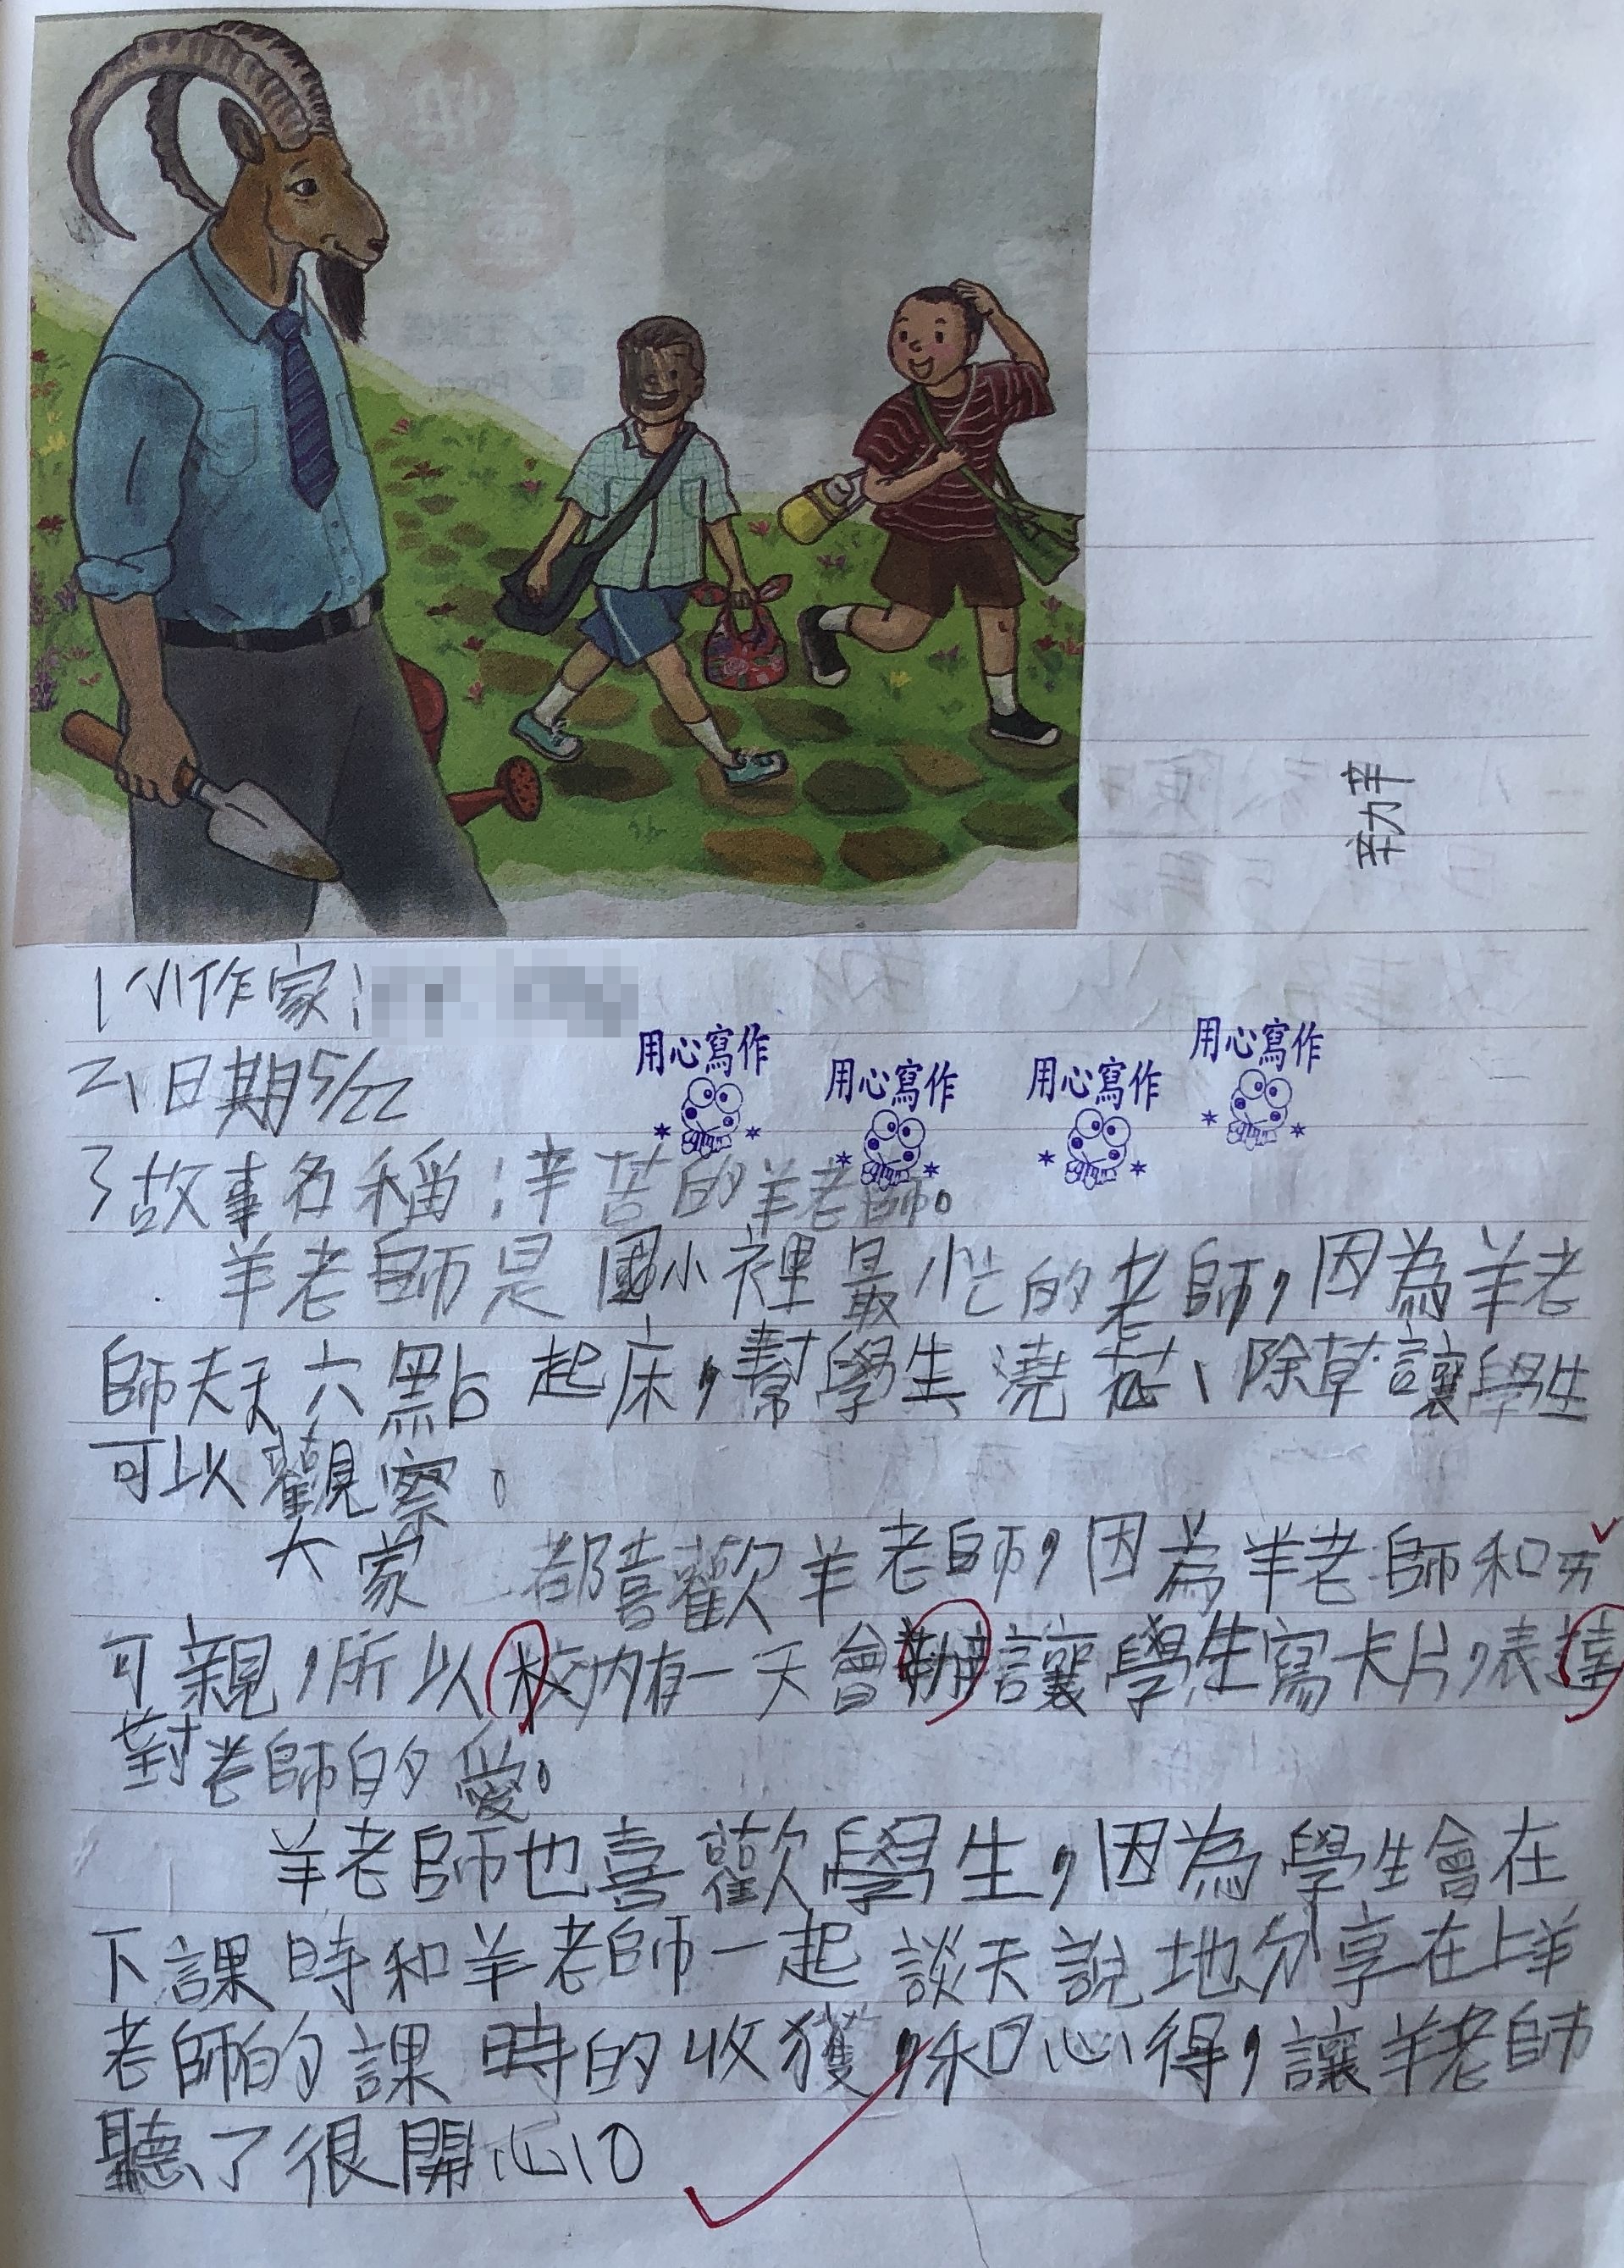 辛力辛
1小作家:
用心寫作
用心寫作
用心寫作
用心寫作
2、日期5/22
3故事名稱:辛苦的羊老師。
羊老師是國小裡最忙的老師,因為羊老
師天天六點起床,幫學生澆花、除草讓學生
可以觀察。
大家都喜歡羊老師,因為羊老師和ㄞˇ
可親,所以校內有一天會辦讓學生寫卡片,表達
對老師的愛。
羊老師也喜歡學生,因為學生會在
下課時和羊老師一起談天說地分享在上羊
老師的課時的收獲,和心得,讓羊老師
聽了很開心。